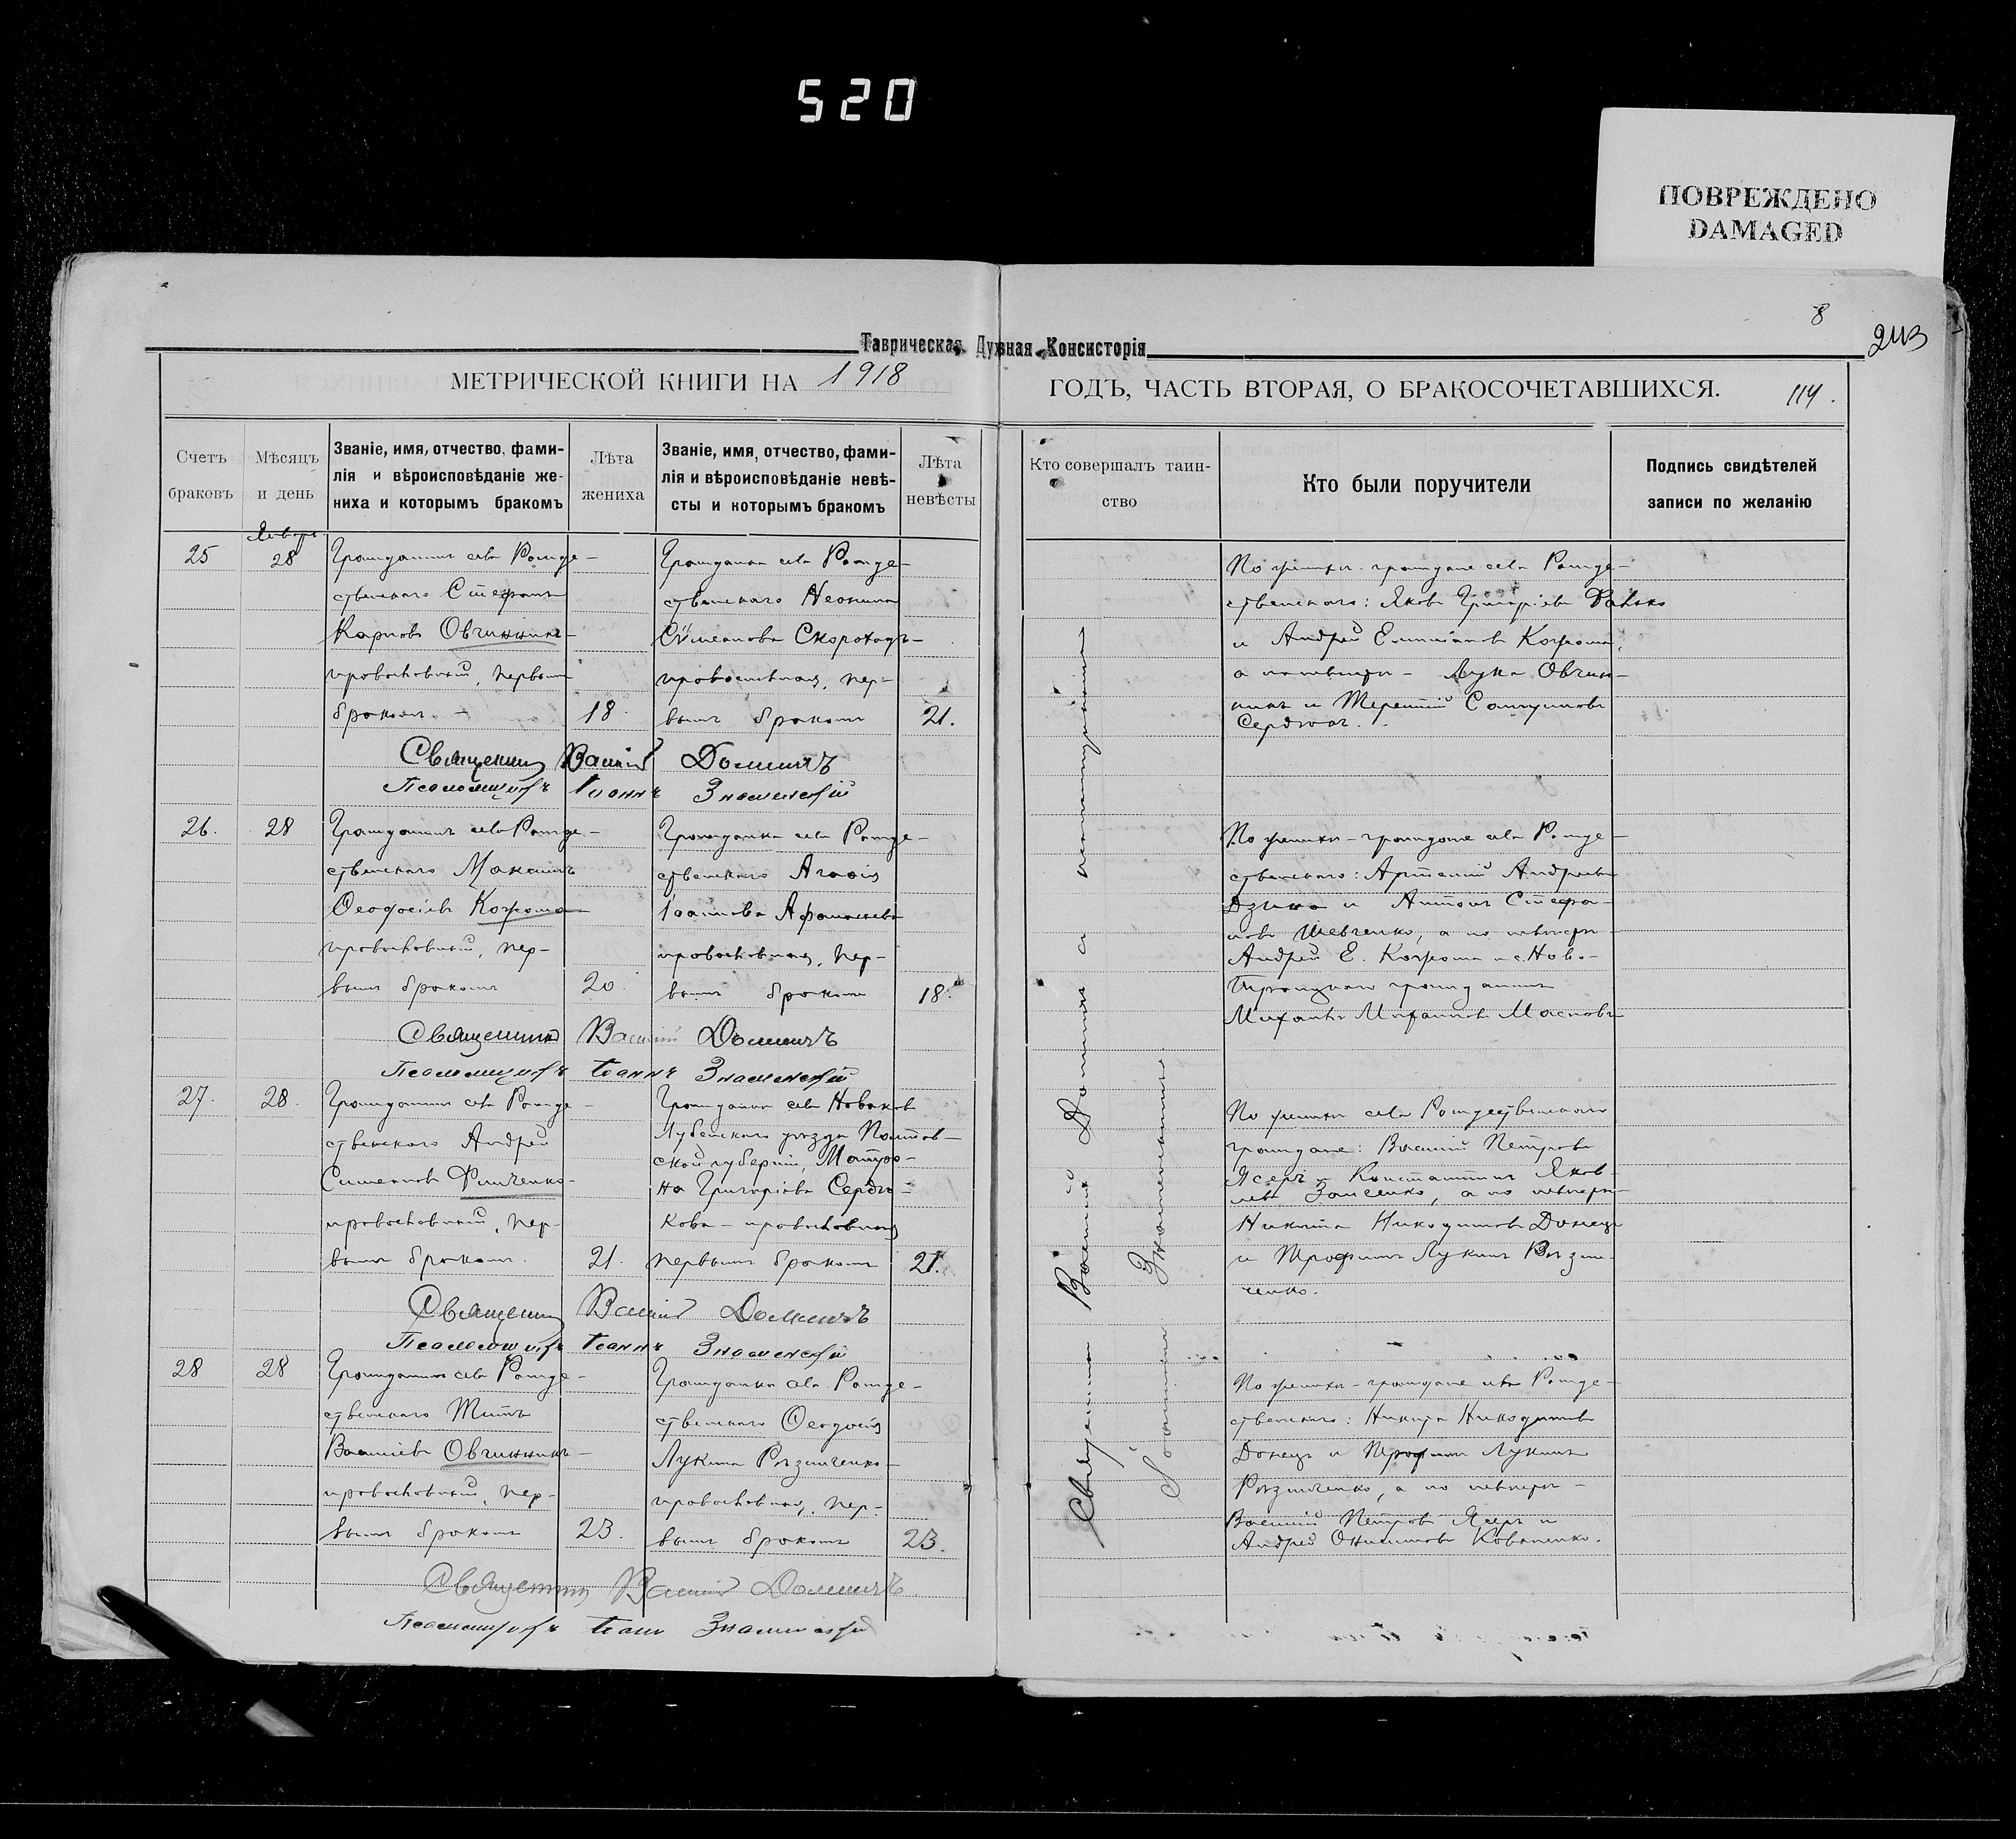 520
ПОВРЕЖДЕНО
DAMAGED
8
243
Таврическая Духовная Консисторія
МЕТРИЧЕСКОЙ КНИГИ НА 1918
ГОДЪ, ЧАСТЬ ВТОРАЯ, О БРАКОСОЧЕТАВШИХСЯ.
114.
Счетъ браковъ
Мѣсяцъ и день
Званіе, имя, отчество, фами-
лія и вѣроисповѣданіе же-
ниха и которымъ бракомъ
Лѣта жениха
Званіе, имя, отчество, фами-
лія и вѣроисповѣданіе невѣ-
сты и которымъ бракомъ
Лѣта невѣсты
Кто совершалъ таин-
ство
Кто были поручители
Подпись свидѣтелей
записи по желанію
Январь
25
28
Гражданинъ села Рожде-
ственскаго Стефанъ
Карповъ Овчинникъ-
православный, первымъ
бракомъ.-
18.
Гражданка села Рожде-
ственскаго Неонила
Сѵмеонова Скороходъ-
православная, пер-
вымъ бракомъ
21.
По женихѣ граждане села Рожде-
ственскаго: Яковъ Григоріевъ
и Андрей Кофома,
а по невѣстѣ - Лука Овчин-
никъ и Терентій
Сердюкъ.
Священникъ Василій Доминъ
Псаломщикъ Іоаннъ Знаменскій
26.
28
Гражданинъ села Рожде-
ственскаго Максимъ
Ѳеодосіевъ
православный, пер-
вымъ бракомъ
20.
Гражданка села Рожде-
ственскаго Агафія
Іоаннова
православная, пер-
вымъ бракомъ
18.
По женихѣ-граждане села Рожде-
ственскаго: Артемій Андреевъ
Дзюба и Антонъ Стефа-
новъ Шевченко, а по невѣстѣ-
Андрей Е. и с. Ново-
Троицкаго гражданинъ
Михаилъ Михаиловъ Масловъ
Священникъ Василій Доминъ
Псаломщикъ Іоаннъ Знаменскій
27.
28.
Гражданинъ села Рожде-
ственскаго Андрей
Симеоновъ
православный, пер-
вымъ бракомъ.
21.
Гражданка села
Лубенскаго уѣзда Полтав-
ской губерніи, Матро-
на Григоріева Сердю-
кова-православная
первымъ бракомъ
21.
По женихѣ села Рождественскаго
граждане: Василій Петровъ
и Константинъ Яков-
левъ, а по невѣстѣ-
Никита Никодимовъ Донецъ
и Трофимъ Лукинъ Рѣзни-
ченко.
Священникъ Василій Доминъ
Псаломщикъ Іоаннъ Знаменскій
28
28
Гражданинъ села Рожде-
ственскаго Титъ
Василіевъ Овчинникъ-
православный, пер-
вымъ бракомъ
23.
Гражданка села Рожде-
ственскаго Ѳеодосія
Лукина Рѣзниченко-
православная, пер-
вымъ бракомъ
23.
По женихѣ-граждане села Рожде-
ственскаго: Никита Никодимовъ
Донецъ и Трофимъ Лукинъ
Рѣзниченко, а по невѣстѣ-
Василій Петровъ и
Андрей Онисимовъ Коваленко.
Священникъ Василій Доминъ
Псаломщикъ Іоаннъ Знаменскій
Священникъ Василій Доминъ и псаломщикъ
Іоаннъ Знаменскій